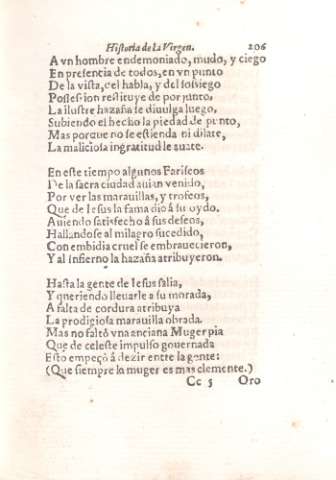 Historia de la Virgen. 206
A vn hombre endemoniado, mudo, y ciego
En presencia de todos, en vn punto
De la vista, del habla, y del sosiego
Possession restituye de por junto.
La ilustre hazaña se diuulga luego,
Subiendo el hecho la piedad de punto,
Mas porque no se estienda ni dilate,
La maliciosa ingratitud le abate.
En este tiempo algunos Fariseos
De la sacra ciudad auian venido,
Por ver las marauillas, y trofeos,
Que de Iesus la fama dio á su oydo.
Auiendo satisfecho á sus deseos,
Hallandose al milagro sucedido,
Con embidia cruel se embrauecieron,
Y al infierno la hazaña atribuyeron.
Hasta la gente de Iesus salia,
Y queriendo lleuarle a su morada,
A falta de cordura atribuya
La prodigiosa marauilla obrada.
Mas no faltó vna anciana Muger pia
Que de celeste impulso gouernada
Esto empeçó á dezir entre la gente:
(Que siempre la muger es mas clemente.)
Cc 3 Oro